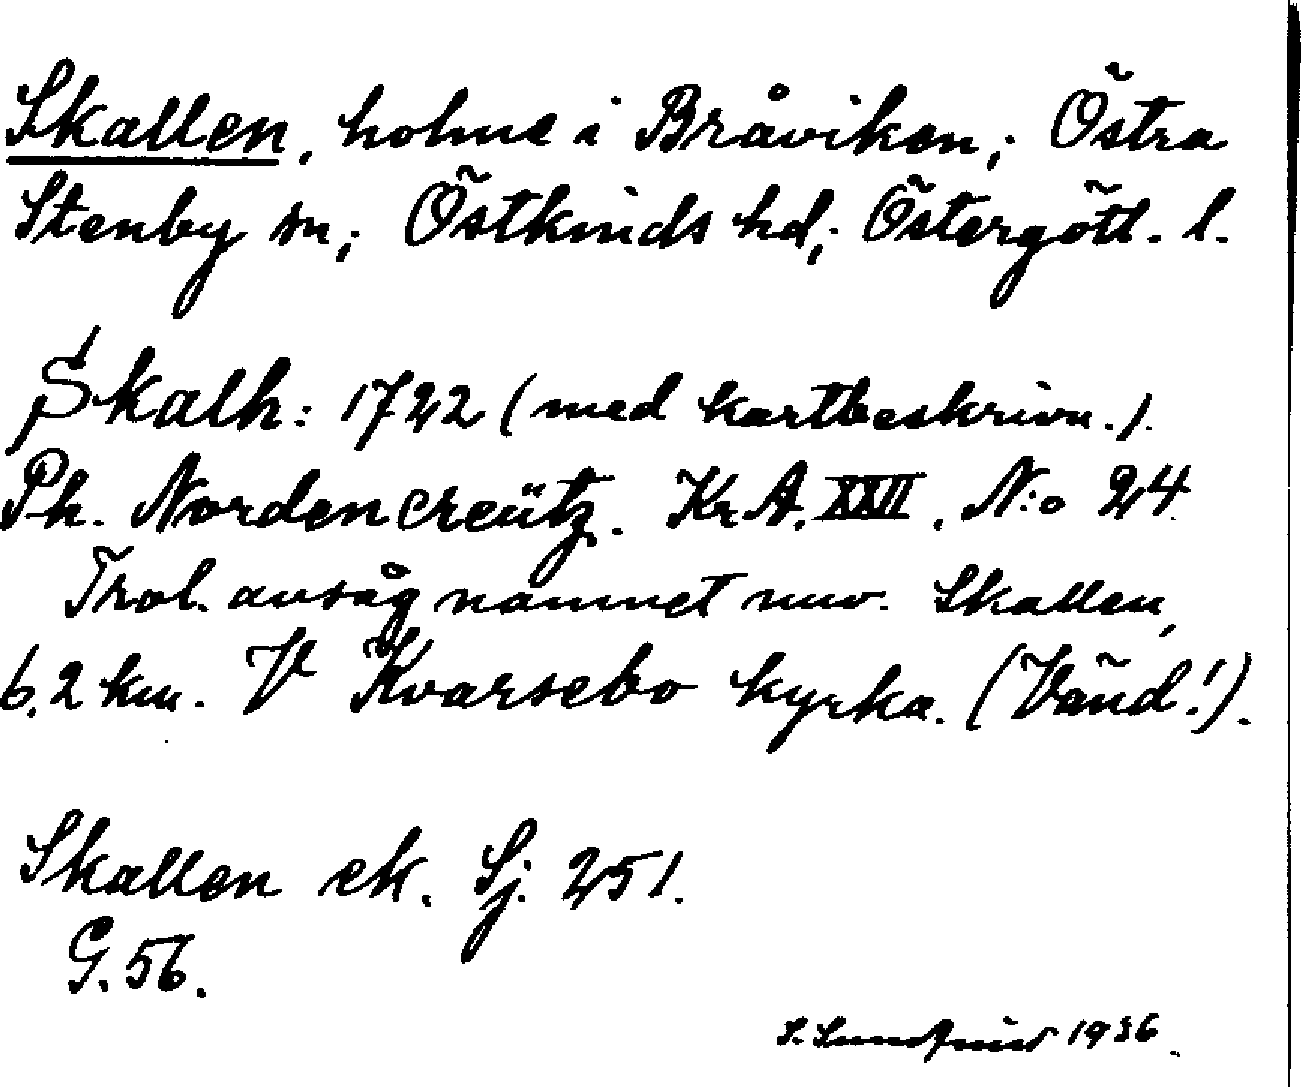 Skallen, holme i Bråviken; Östra
Stenby sn; Östkinds hd; Östergötl. l.
Skalh: 1722 (med kartbeskrivn.).
Ph. Nordencreütz. Kr.A. XXII. N:o 24.
Trol. avsåg namnet nuv. Skallen,
6,2 km. V Kvarsebo kyrka. (Vänd!).
Skallen ek. Sj. 251.
G. 56.
S. 1936.